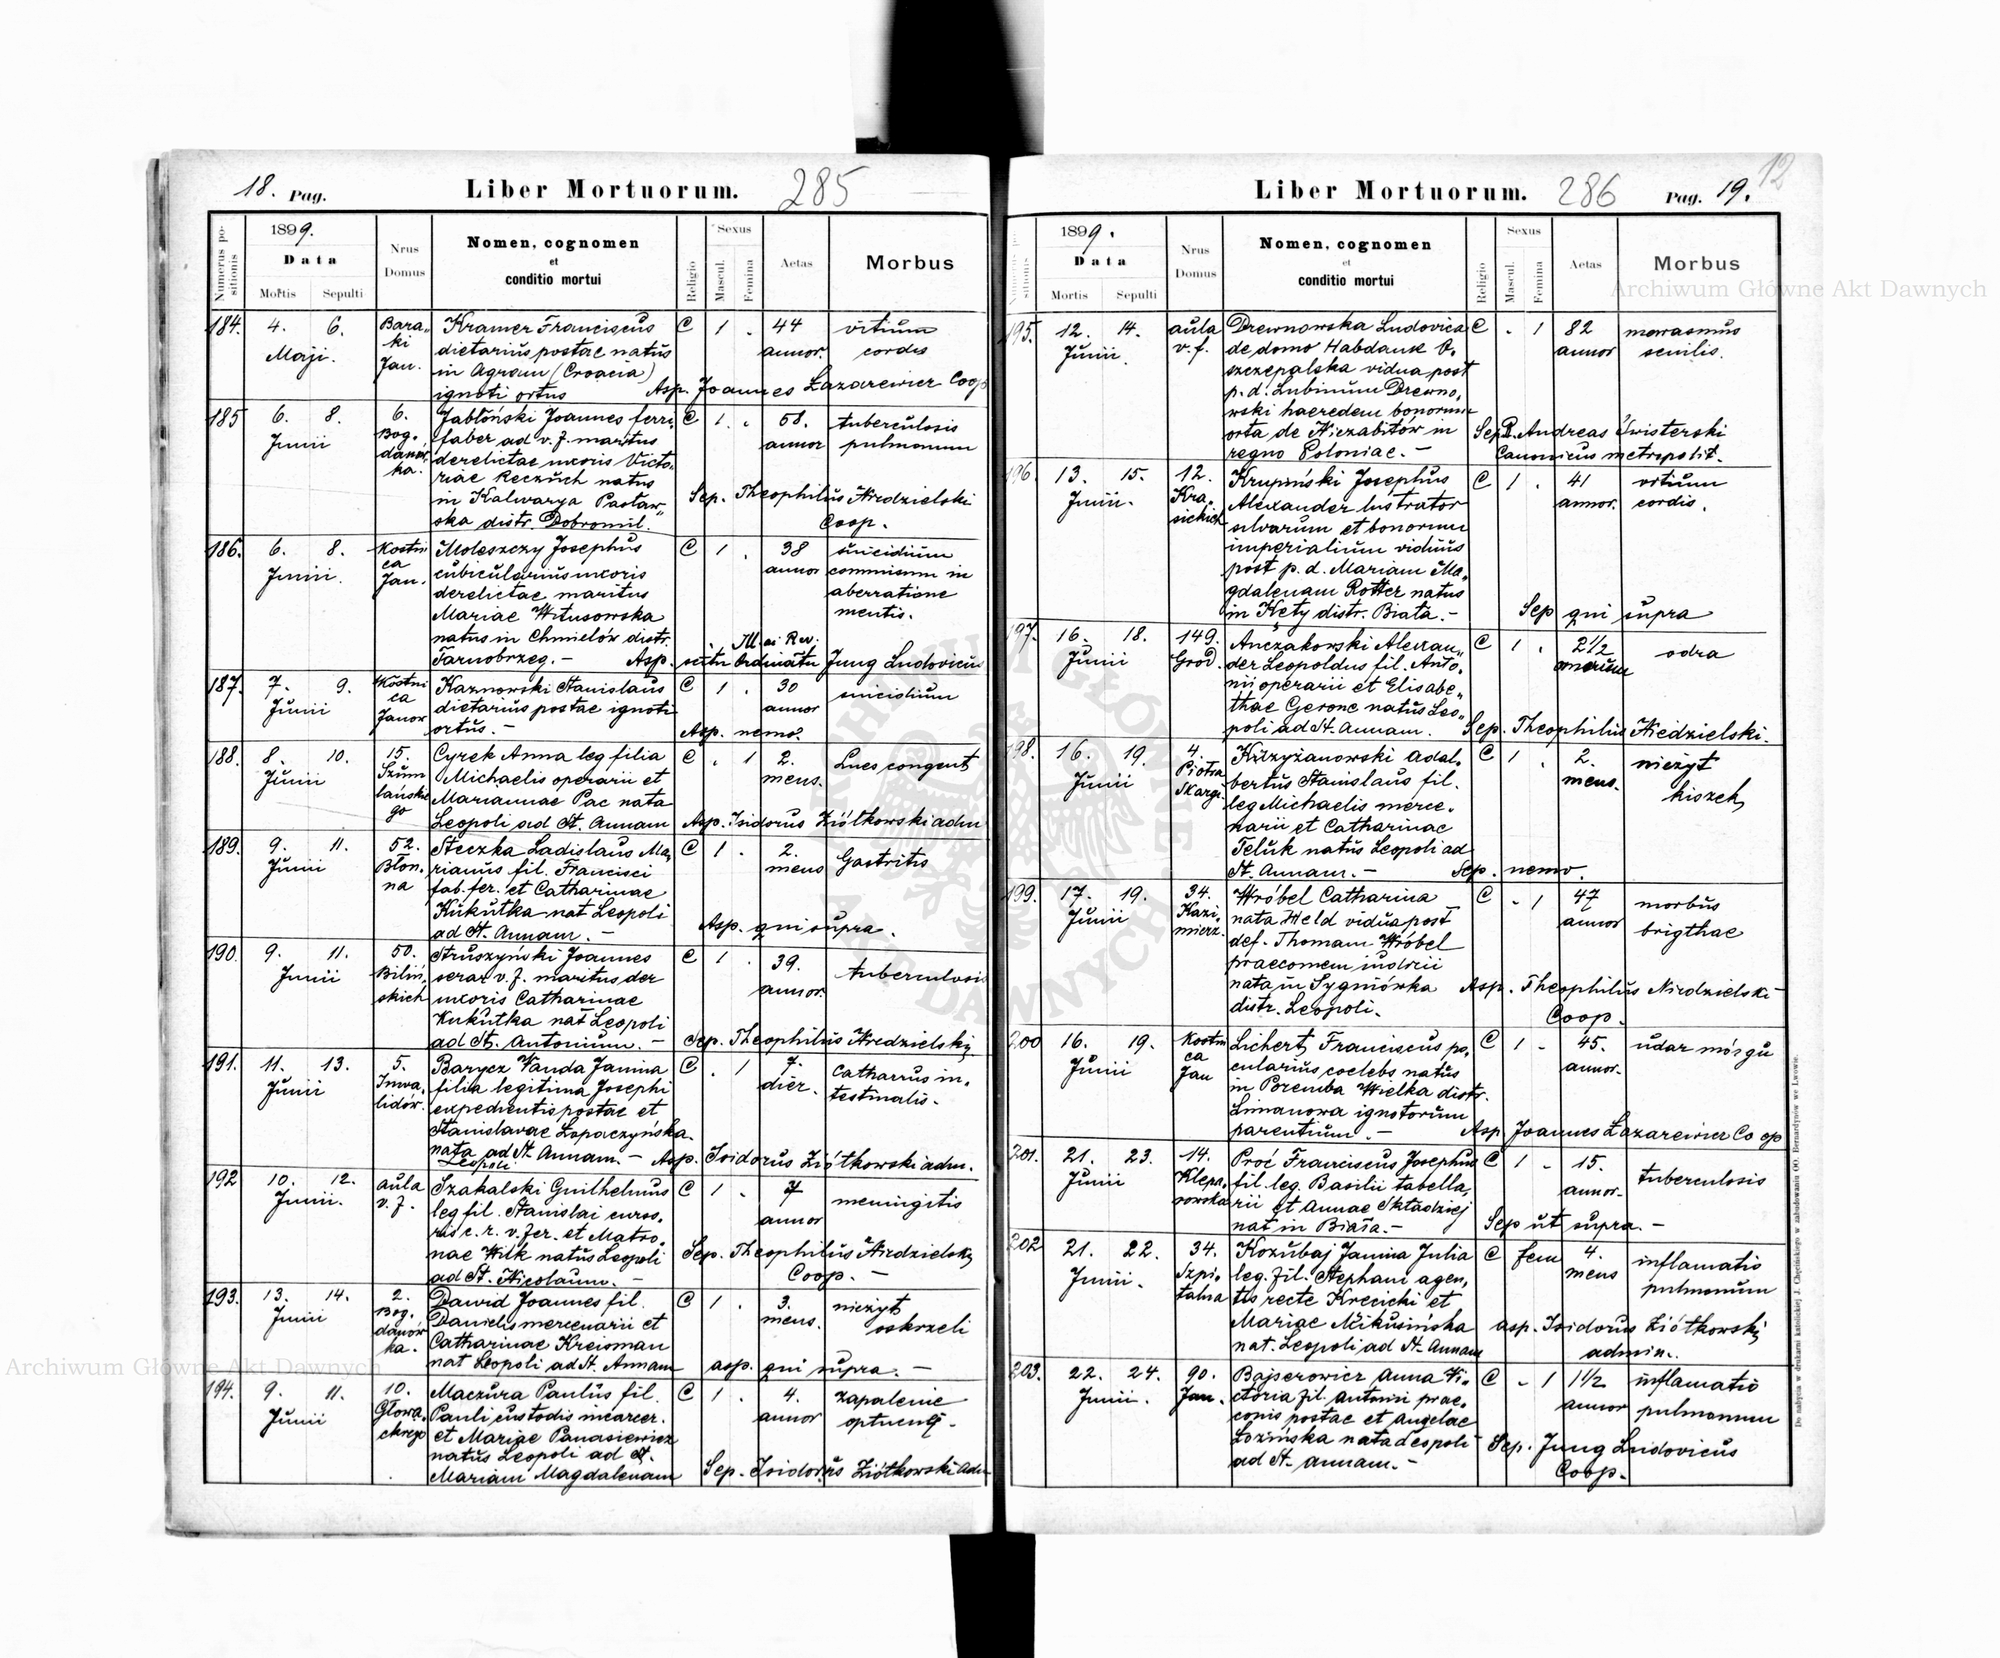 18. Pag. Liber Mortuorum. 285
Numerus positionis
1899.
Data
Mortis Sepulti
Nrus Domus
Nomen, cognomen
et
conditio mortui
Religio
Sexus
Mascul. Femina
Aetas
Morbus
184. 4. 6. Maji. Bara„ ki Jan.
Kramer Franciscus
dietarius postae natus
in Agram (Croacia)
ignoti ortus
C 1 . 44 annor. vitium cordis
Asp. Joannes Łazarewicz Coop
185 6. 8. Junii 6. Bog. danów. ka.
Jabłoński Joannes ferri
faber ad v. f. maritus
derelictae uxoris Victo„
riae Keczuch natus
in Kalwarya Pacław„
ska distr. Dobromil.
C 1 . 58. annor tuberculosis pulmonum
Sep. Theophilus Niedzielski
Coop.
186. 6. 8. Junii. Kostni ca Jan.
Moleszczy Josephus
cubicularius uxoris
derelictae maritus
Mariae Witusowska
natus in Chmielów distr.
Tarnobrzeg. –
C 1 . 38 annor suicidium commisum in aberratione mentis.
Ill. ac Rev.
Asp. scitu Ordinatu Jung Ludovicus
187. 7. 9. Junii Kostni ca Janow
Kaznowski Stanislaus
dietarius postae ignoti
ortus. –
C 1 . 30 annor suicidium
Asp. nemo.
188. 8. 10. Junii 15. Szum lańskie go
Cyrek Anna leg filia
Michaelis operarii et
Mariannae Pac nata
Leopoli ad St. Annam
C . 1 2. mens. Lues congent
Asp. Isidorus Ziółkowski adm
189. 9. 11. Junii 52. Błon. na
Steczka Ladislaus Ma„
rianus fil. Francisci
fab. fer. et Catharinae
Kukułka nat Leopoli
ad St. Annam. –
C 1 . 2. mens Gastritis
Asp. qui supra.
190. 9. 11. Junii 50. Biliń„ skich
Struszyński Joannes
serar v. f. maritus der
uxoris Catharinae
Kukułka nat Leopoli
ad St. Antonium. –
C 1 . 39. annor. tuberculosis
Sep. Theophilus Niedzielski
191. 11. 13. Junii 5. Inwa„ lidów.
Barycz Vanda Janina
filia legitima Josephi
expedientis postae et
Stanislavae Łopaczyńska.
nata ad St. Annam. –
Leopoli
C . 1 7. dier. catharrus in„ testinalis.
Asp. Isidorus Ziółkowski adm.
192 10. 12. Junii. aula v. f.
Szakalski Guilhelmus
leg fil. Stanislai curso„
ris c. r. v. fer. et Matro„
nae Wilk natus Leopoli
ad St. Nicolaum. –
C 1 . 7 annor meningitis
Sep. Theophilus Niedzielski
Coop. –
193. 13. 14. Junii 2. Bog. danów ka.
Dawid Joannes fil.
Danielis mercenarii et
Catharinae Kreisman
nat Leopoli ad St. Annam
C 1 . 3. mens. nieżyt oskrzeli
asp. qui supra. –
194. 9. 11. Junii 10. Głowa„ ckiego
Maczura Paulus fil.
Pauli custodis incarcer.
et Mariae Panasiewicz
natus Leopoli ad St.
Mariam Magdalenam
C 1 . 4. annor zapalenie opłucnej.
Sep. Isidorus Ziółkowski adm
Liber Mortuorum. 286 Pag. 19. 12
1899.
Data
Mortis Sepulti
Nrus Domus
Nomen, cognomen
et
conditio mortui
Religio
Sexus
Mascul. Femina
Aetas
Morbus
195. 12. 14. Junii. aula v. f.
Drewnowska Ludovica
de domo Habdank O„
szczepalska vidua post
p. d. Lubinum Drewno„
wski haeredem bonorum
orta de Niezabitów in
regno Poloniae. –
C . 1 82 annor marasmus senilis.
Sep. R. Andreas Świsterski
Canonicus metropolit.
196. 13. 15. Junii. 12. Kra. sickich
Krupiński Josephus
Alexander lustrator
silvarum et bonorum
imperialium viduus
post p. d. Mariam Ma„
gdalenam Rotter natus
in Kęty distr. Biała. –
C 1 . 41 annor. vitium cordis.
Sep qui supra
197. 16. 18. Junii 149. Grod.
Anczakowski Alexan„
der Leopoldus fil. Anto„
nii operarii et Elisabe„
thae Gerone natus Leo„
poli ad St. Annam.
C 1 . 2 1/2 odra
Sep. Theophilus Niedzielski.
198. 16. 19. Junii 4. Piotra Skargi.
Krzyżanowski Adal„
bertus Stanislaus fil.
leg Michaelis merce„
narii et Catharinae
Teluk natus Leopoli ad
St. Annam. –
C 1 . 2. mens. nieżyt kiszek
Sep. nemo.
199. 17. 19. Junii 34. Kazi„ mierz.
Wróbel Catharina
nata Weld vidua post
def. Thomam Wróbel
praeconem iudicii
nata in Sygniówka
distr. Leopoli.
C . 1 47 annor morbus brigthae
Asp. Theophilus Niedzielski
Coop.
200 16. 19. Junii Kostni ca Jan
Lichert Franciscus pe„
cularius coelebs natus
in Poremba Wielka distr.
Limanowa ignotorum
parentium. –
C 1 . 45. annor. udar mózgu
Asp Joannes Łazarewicz Coop
201. 21. 23. Junii 14. Klepa„ rowska
Proć Franciscus Josephus
fil. leg. Basilii tabella„
rii et Annae Składziej
nat in Biała. –
C 1 . 15. annor. tuberculosis
Sep ut supra. –
202 21. 22. Junii. 34. Szpi„ talna
Kozubaj Janina Julia
leg. fil. Stephani agen„
tis recte Krecicki et
Mariae Mikusińska
nat. Leopoli ad St. Annam
C fem 4. mens inflamatio pulmonum
asp. Isidorus Ziółkowski
admin.
203. 22. 24. Junii. 90. Jan.
Bajserowicz Anna Vi„
ctoria fil. Antonii prae„
conis postae et Angelae
Łozińska nata Leopoli
ad St. Annam. –
C . 1 1 1/2 annor inflamatio pulmonum
Sep. Jung Ludovicus
Coop.
Do nabycia w drukarni katolickiej J. Chęcińskiego w zabudowaniu OO. Bernardynów we Lwowie.
Archiwum Główne Akt Dawnych
Archiwum Główne Akt Dawnych
ARCHIWUM GŁÓWNE AKT DAWNYCH